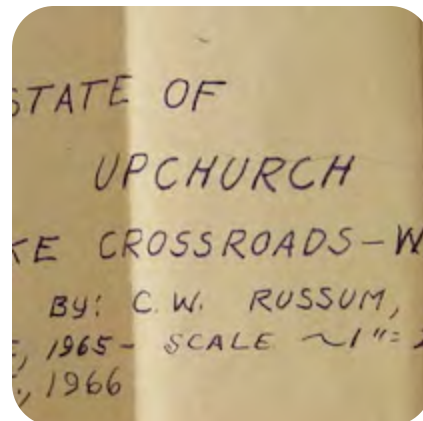 STATE OF
UPCHURCH
KE CROSSROADS - W
BY: C. W. RUSSUM,
E, 1965 - SCALE ~1"=
., 1966